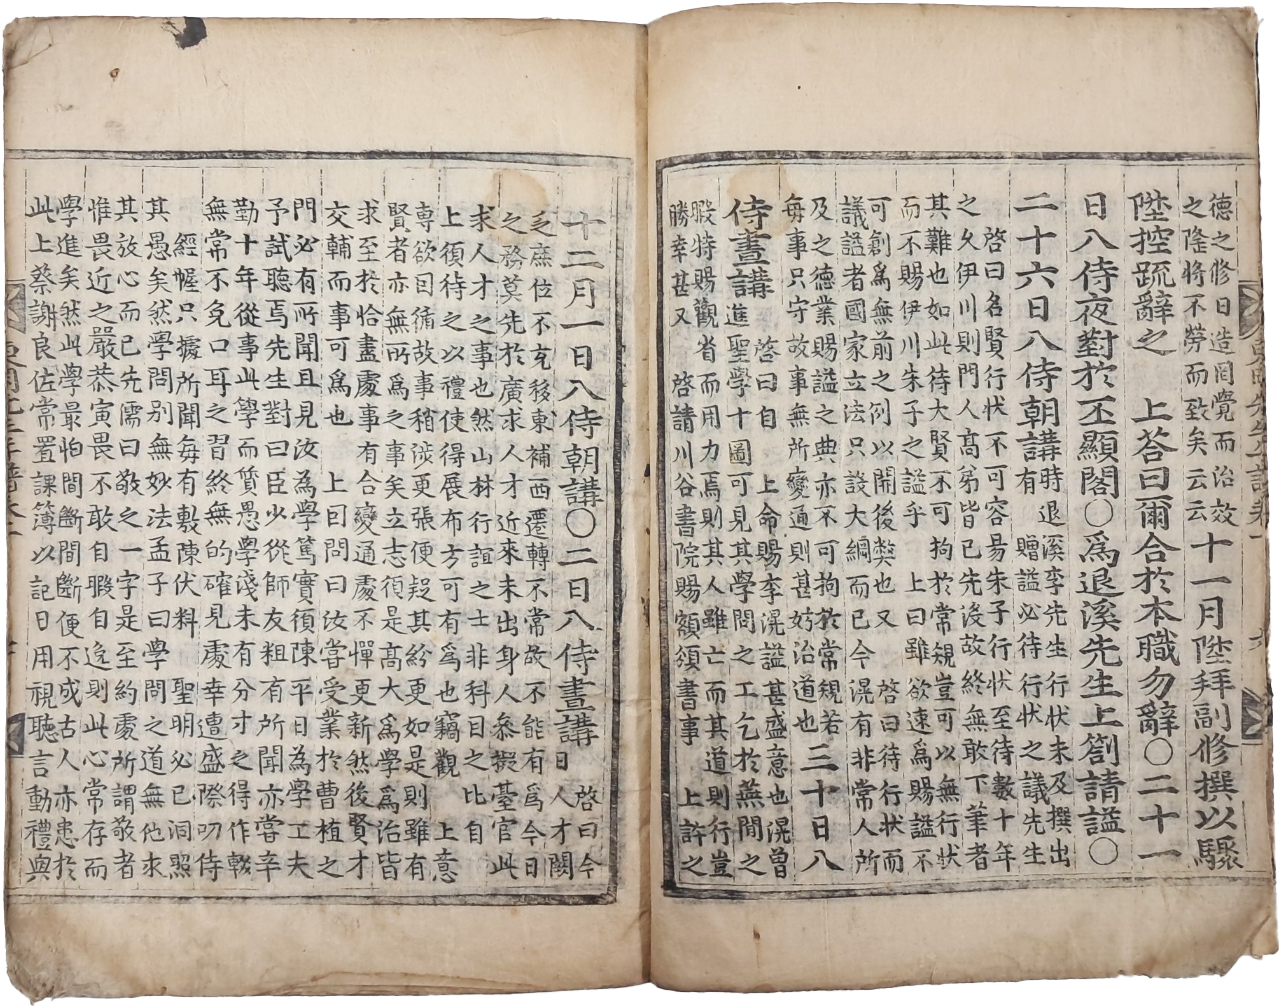 德之修日造閫覺而治效
之隆將不勞而致矣云云
十一月陞拜副修撰以驟
陞控疏辭之　上答曰爾合於本職勿辭〇二十一
日入侍夜對於丕顯閣〇爲退溪先生上箚請諡〇
二十六日入侍朝講
時退溪李先生行狀未及撰出
有　贈諡必待行狀之議先生
啓曰名賢行狀不可容昜朱子行狀至待數十年
之久伊川則門人高弟皆已先沒故終無敢下筆者
其難也如此待大賢不可拘於常規豈可以無行狀
而不賜伊川朱子之諡乎　上曰雖欲速爲賜諡不
可創爲無前之例以開後弊也又　啓曰待行狀而
議諡者國家立法只設大綱而已今滉有非常人所
及之德業賜諡之典亦不可拘於常規若
每事只守故事無所變通則甚妨治道也
三十日入
侍晝講
啓曰自　上命賜李滉諡甚盛意也滉曾
進聖學十圖可見其學問之工乞於燕閒之
暇特賜觀省而用力焉則其人雖亡而其道則行豈
勝幸甚又　啓請川谷書院賜額頒書事　上許之
十二月一日入侍朝講〇二日入侍晝講
啓曰今
日人才闕
乏庶位不充後東補西遷轉不常故不能有爲今日
之務莫先於廣求人才近來未出身人叅擬臺官此
求人才之事也然山林行誼之士非科目之比自
上須待之以禮使得展布方可有爲也竊觀　上意
専欲因循故事稍涉更張便疑其紛更如是則雖有
賢者亦無所爲之事矣立志須是高大爲學爲治皆
求至於恰盡處事有合變通處不憚更新然後賢才
交輔而事可爲也　上因問曰汝嘗受業於曹植之
門必有所聞且見汝為學篤實須陳平日為學工夫
予試聽焉先生對曰臣少從師友粗有所聞亦嘗辛
勤十年從事此學而質愚學淺未有分寸之得作輟
無常不免口耳之習終無的確見處幸遭盛際叨侍
經幄只據所聞每有敷陳伏料　聖明必已洞照
其愚矣然學問別無妙法孟子曰學問之道無他求
其放心而已先儒曰敬之一字是至約處所謂敬者
惟畏近之嚴恭寅畏不敢自暇自逸則此心常存而
學進矣然此學最怕間斷間斷便不成古人亦患於
此上蔡謝良佐常置課簿以記日用視聽言動禮與